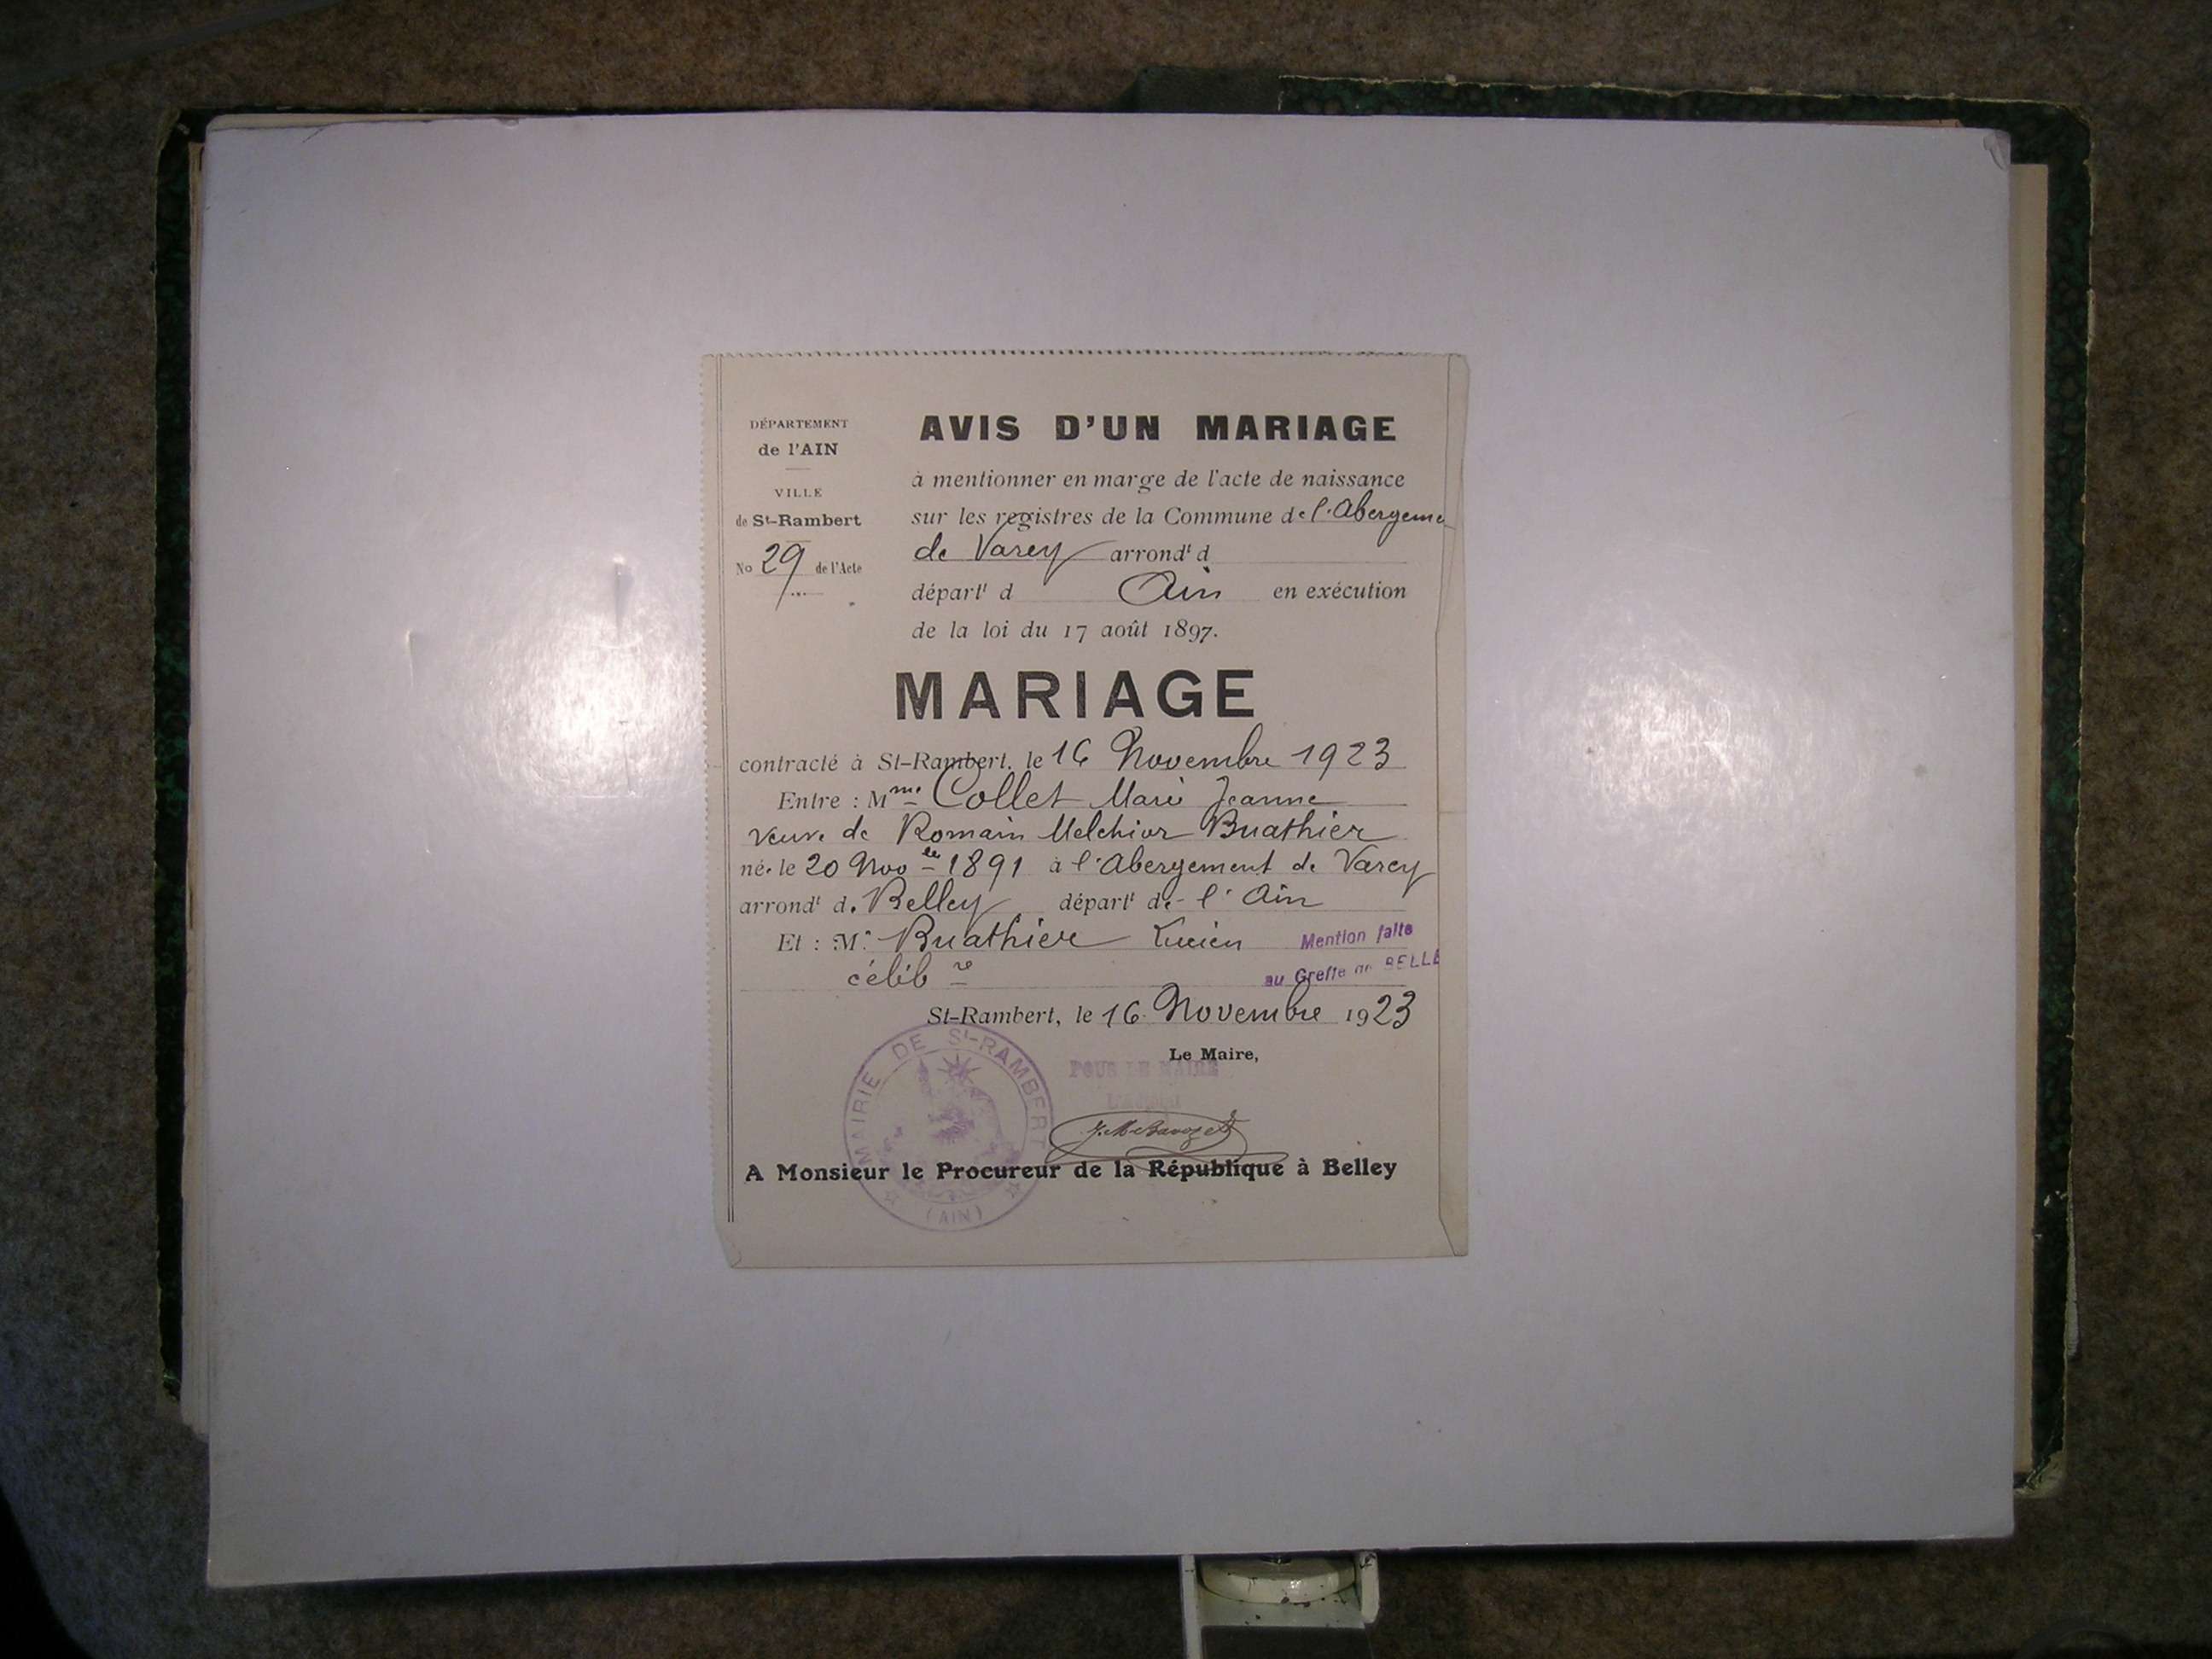 DÉPARTEMENT
de l'AIN
VILLE
de St-Rambert
No 29 de l'Acte
AVIS D'UN MARIAGE
à mentionner en marge de l'acte de naissance
sur les registres de la Commune de l'Abergeme
de Varey arrondt d
départt d Ain en exécution
de la loi du 17 août 1897.
MARIAGE
contracté à St-Rambert, le 16 Novembre 1923
Entre : Mme Collet Marie Jeanne
veuve de Romain Melchior Buathier
née le 20 Novbre 1891 à l'Abergement de Varey
arrondt de Belley départt de l'Ain
Et : Mr Buathier Lucien
célibre
Mention faite
au Greffe de BELLE
St-Rambert, le 16 Novembre 1923
Le Maire,
POUR LE MAIRE
L'Adjoint
MAIRIE DE St-RAMBERT
(AIN)
A Monsieur le Procureur de la République à Belley